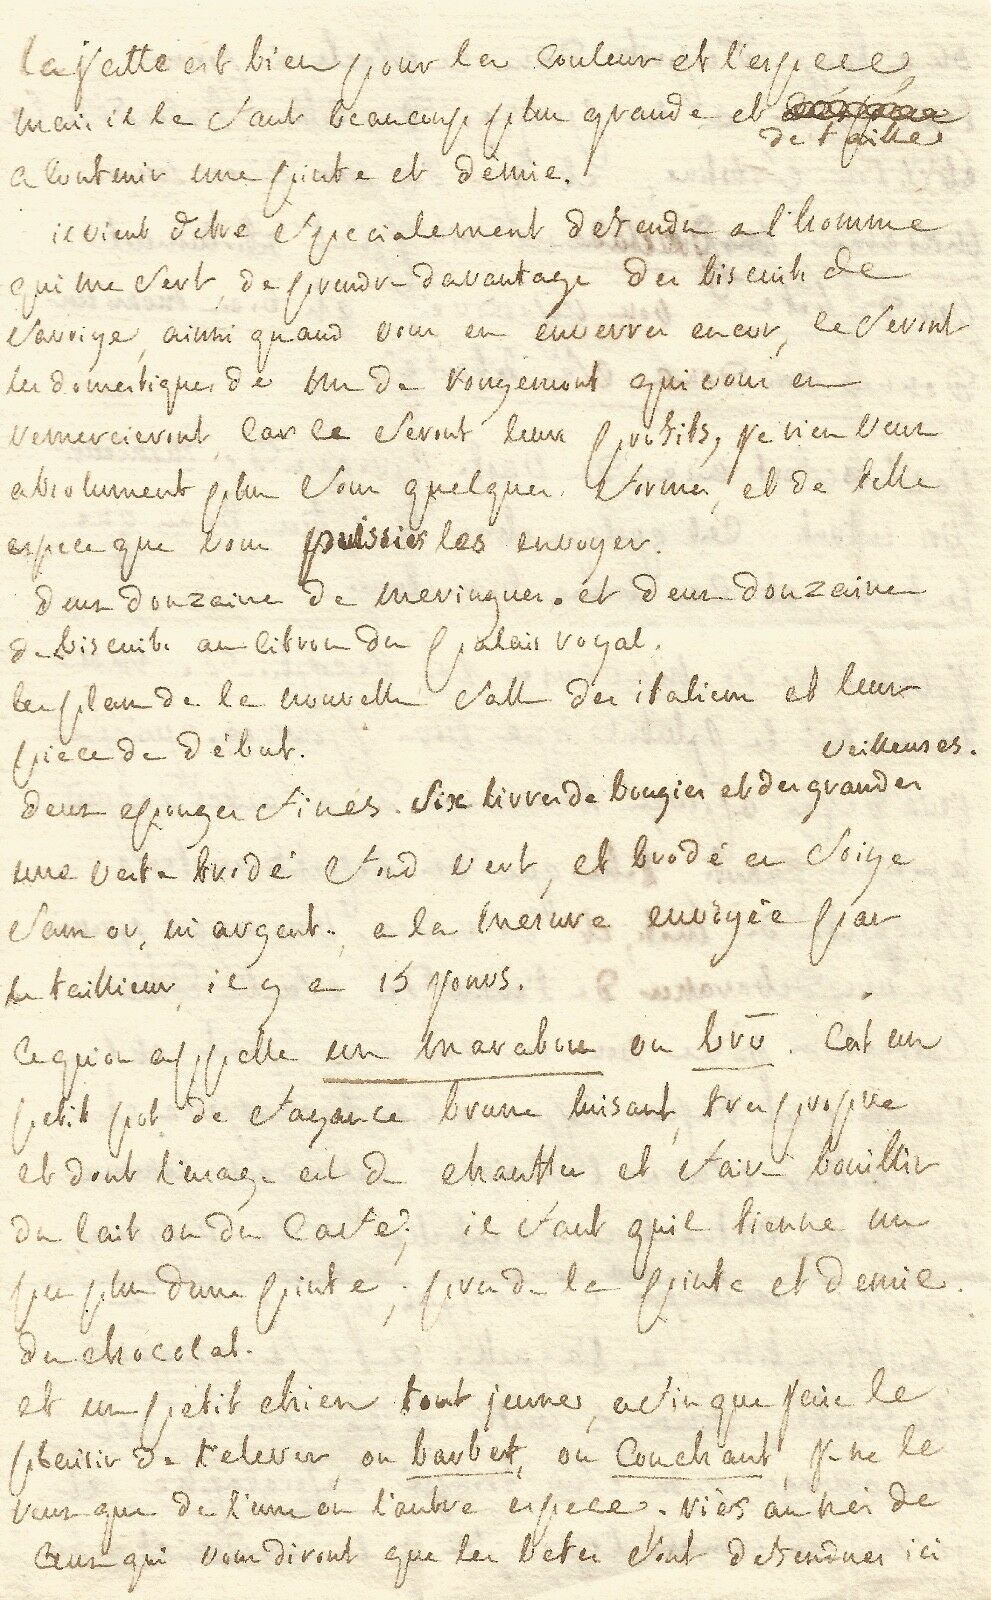 la jatte est bien pour la couleur et l'espece,
mais il la faut beaucoup plus grande et
de taille
a contenir une pinte et démie.
il vient d'etre specialement defendu a l'homme
qui me sert, de prendre davantage des biscuits de
Savoiye, ainsi quand vous en enverres encor, ce seront
les domestiques de Mr de rougemont qui vous en
remercieront, car ce seront leurs profits, je n'en veux
absolument plus sous quelques formes, et de telle
espece que vous puissies les envoyer.
deux douzaines de meringues. et deux douzaines
de biscuits au citron du palais royal.
les plans de la nouvelle salle des italiens et leur
piece de début.
veilleuses.
deux eponges fines. Six livres de bougies et des grandes
une veste brodé fond vert, et brodé en soiye
sans or, ni argent, a la mesure envoyée par
le taillieur, il y a 15 jours.
Ce qu'on appelle un marabou ou brū. C'est un
petit pot de fayance brune luisant, tres propre
et dont l'usage est de chauffer et faire bouillir
du lait ou du caffé; il faut quil tienne un
peu plus d'une pinte; prendre la pinte et demie.
du chocolat.
et un petit chien tout jeune, afin que j'aie le
plaisir de l'elever, ou barbet, ou Couchant, je ne le
veux que de l'une ou l'autre espece. riès au nés de
Ceux qui vous diront que les betes sont defendues ici